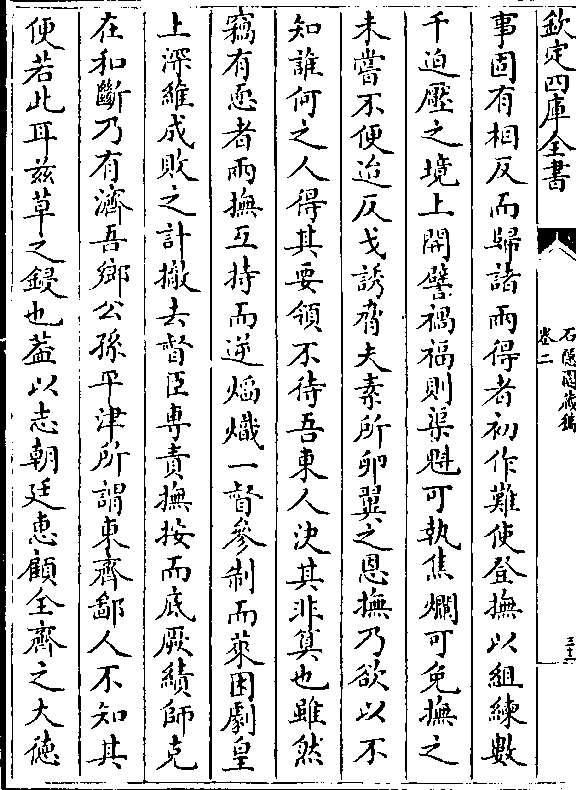 欽定四庫全書
石隱園藏稿
卷二
事固有相反而歸諸兩得者初作難使登撫以組練數
千迫壓之境上開譬禍福則渠魁可執焦爛可免撫之
未嘗不便迨反戈誘脅夫素所卵翼之恩撫乃欲以不
知誰何之人得其要領不待吾東人決其非算也雖然
竊有恧者兩撫互持而逆熖熾一督參制而萊困劇皇
上深維成敗之計撤去督臣專責撫按而底厥績師克
在和斷乃有濟吾鄉公孫平津所謂東齊鄙人不知其
便若此耳兹草之鋟也葢以志朝廷惠顧全齊之大徳